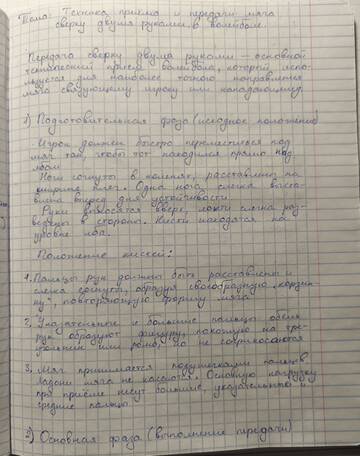 Тема: Техника приема и передачи мяча
сверху двумя руками в волейболе.
Передача сверху двумя руками — основной
технический прием волейбола, который испо-
льзуется для наиболее точного направления
мяча связующему игроку или нападающему.
1) Подготовительная фаза (исходное положение)
Игрок должен быстро переместиться под
мяч так, чтобы тот находился прямо над
лбом
Ноги согнуты в коленях, расставлены на
ширине плеч. Одна нога слегка выста-
влена вперед для устойчивости
Руки выносятся вверх, локти слегка раз-
ведены в стороны. Кисти находятся на
уровне лба.
Положение кистей:
1. Пальцы рук должны быть расставлены и
слегка согнуты, образуя своеобразную „корзин-
ку", повторяющую форму мяча
2. Указательные и большие пальцы обеих
рук образуют фигуру, похожую на тре-
угольник или ромб, но не соприкасаются
3. Мяч принимается подушечками пальцев
Ладони мяча не касаются. Основную нагрузку
при приеме несут большие, указательные и
средние пальцы.
2) Основная фаза (выполнение передачи)